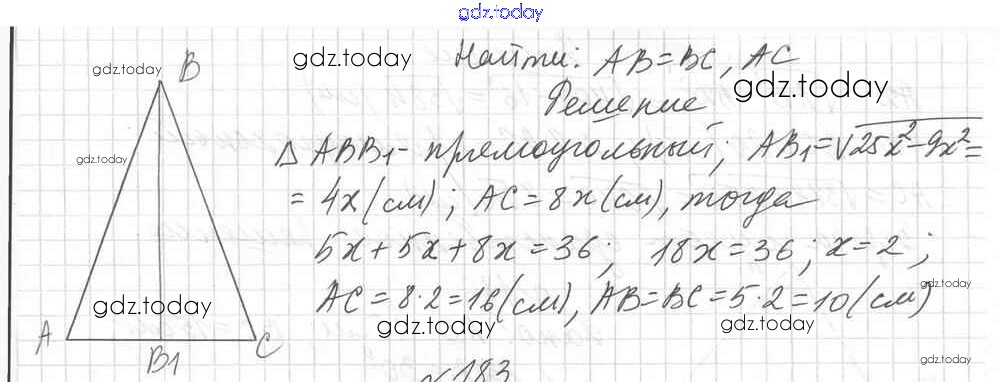 gdz.today
gdz.today B gdz.today Найти: AB=BC, AC
Решение gdz.today
gdz.today Δ ABB1 - прямоугольный; AB1=√25x²-9x²=
= 4x(см); AC=8x(см), тогда
5x+5x+8x=36; 18x=36; x=2;
gdz.today
gdz.today AC=8·2=16(см), AB=BC=5·2=10(см)
gdz.today gdz.today
A B1 C
gdz.today
183